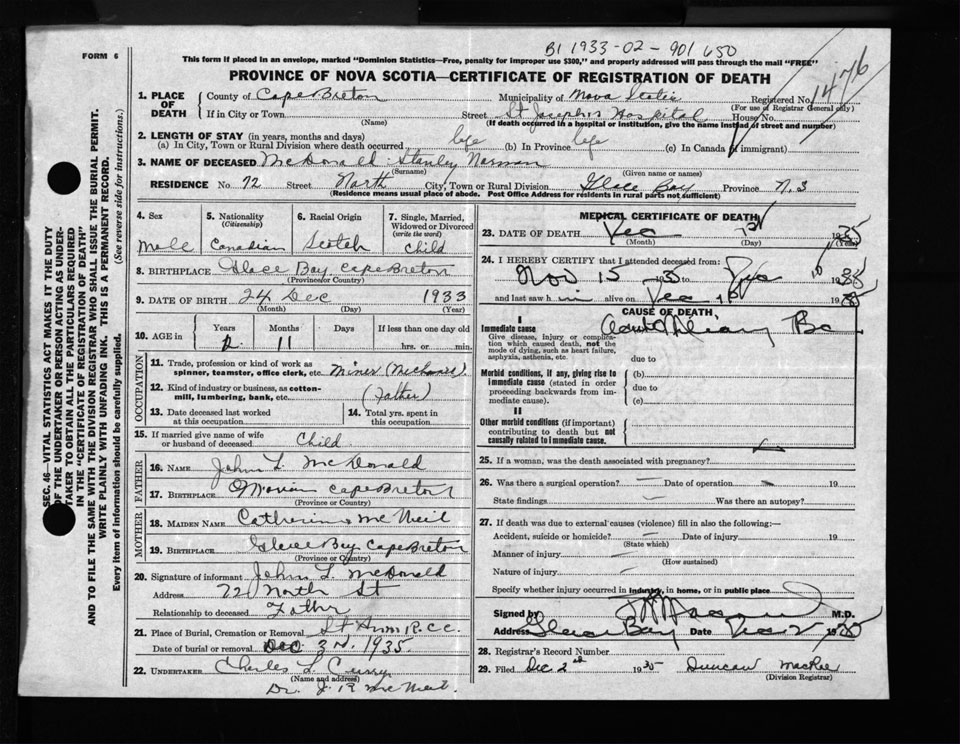 B1 1933-02-901650
FORM 6
This form if placed in an envelope, marked "Dominion Statistics—Free, penalty for improper use $300," and properly addressed will pass through the mail "FREE"
PROVINCE OF NOVA SCOTIA—CERTIFICATE OF REGISTRATION OF DEATH
1476
1. PLACE OF DEATH
County of Cape Breton Municipality of Nova Scotia Registered No.
(For use of Registrar General only)
If in City or Town Street St Joseph's Hospital House No.
(Name) (If death occurred in a hospital or institution, give the name instead of street and number)
2. LENGTH OF STAY (in years, months and days)
(a) In City, Town or Rural Division where death occurred life (b) In Province life (c) In Canada (if immigrant)
3. NAME OF DECEASED McDonald Stanley Norman
(Surname) (Given name or names)
RESIDENCE No. 72 Street North City, Town or Rural Division Glace Bay Province N.S
(Residence means usual place of abode. Post Office Address for residents in rural parts not sufficient)
SEC. 46—VITAL STATISTICS ACT MAKES IT THE DUTY
OF THE UNDERTAKER OR PERSON ACTING AS UNDER-
TAKER TO OBTAIN ALL THE PARTICULARS REQUIRED
IN THE "CERTIFICATE OF REGISTRATION OF DEATH"
AND TO FILE THE SAME WITH THE DIVISION REGISTRAR WHO SHALL ISSUE THE BURIAL PERMIT.
WRITE PLAINLY WITH UNFADING INK. THIS IS A PERMANENT RECORD.
Every item of information should be carefully supplied. (See reverse side for instructions.)
4. Sex
Male
5. Nationality
(Citizenship)
Canadian
6. Racial Origin
Scotch
7. Single, Married, Widowed or Divorced
(write the word)
Child
8. BIRTHPLACE Glace Bay Cape Breton
(Province or Country)
9. DATE OF BIRTH 24 Dec 1933
(Month) (Day) (Year)
10. AGE in
Years Months Days If less than one day old
11 hrs. or min.
OCCUPATION
11. Trade, profession or kind of work as spinner, teamster, office clerk, etc. Miner (Mechanic).
12. Kind of industry or business, as cotton-mill, lumbering, bank, etc. (Father)
13. Date deceased last worked at this occupation
14. Total yrs. spent in this occupation
15. If married give name of wife or husband of deceased Child
FATHER
16. NAME John L. McDonald
17. BIRTHPLACE Cape Breton
(Province or Country)
MOTHER
18. MAIDEN NAME Catherine McNeil
19. BIRTHPLACE Glace Bay Cape Breton
(Province or Country)
20. Signature of informant John L. McDonald
Address 72 North St
Relationship to deceased Father
21. Place of Burial, Cremation or Removal St Anns R.C.C.
Date of burial or removal Dec 3rd 1935.
22. UNDERTAKER Charles L. Curry
(Name and address)
Dr. J. R McNeil.
MEDICAL CERTIFICATE OF DEATH
23. DATE OF DEATH Dec 1st 1935
(Month) (Day) (Year)
24. I HEREBY CERTIFY that I attended deceased from:
Nov 15 1935 to Dec 1st 1935
and last saw h im alive on Dec 1st 1935
CAUSE OF DEATH
I
Immediate cause
Give disease, injury or complication which caused death, not the mode of dying, such as heart failure, asphyxia, asthenia, etc.
due to
Morbid conditions, if any, giving rise to immediate cause (stated in order proceeding backwards from immediate cause).
(b)
due to
(c)
II
Other morbid conditions (if important) contributing to death but not causally related to immediate cause.
25. If a woman, was the death associated with pregnancy?
26. Was there a surgical operation? — Date of operation — 19
State findings — Was there an autopsy?
27. If death was due to external causes (violence) fill in also the following:—
Accident, suicide or homicide? Date of injury 19
(State which)
Manner of injury
(How sustained)
Nature of injury
Specify whether injury occurred in industry, in home, or in public place
Signed by M.D.
Address Glace Bay Date Dec 2 1935
28. Registrar's Record Number
29. Filed Dec 2nd 1935 Duncan MacRae
(Division Registrar)